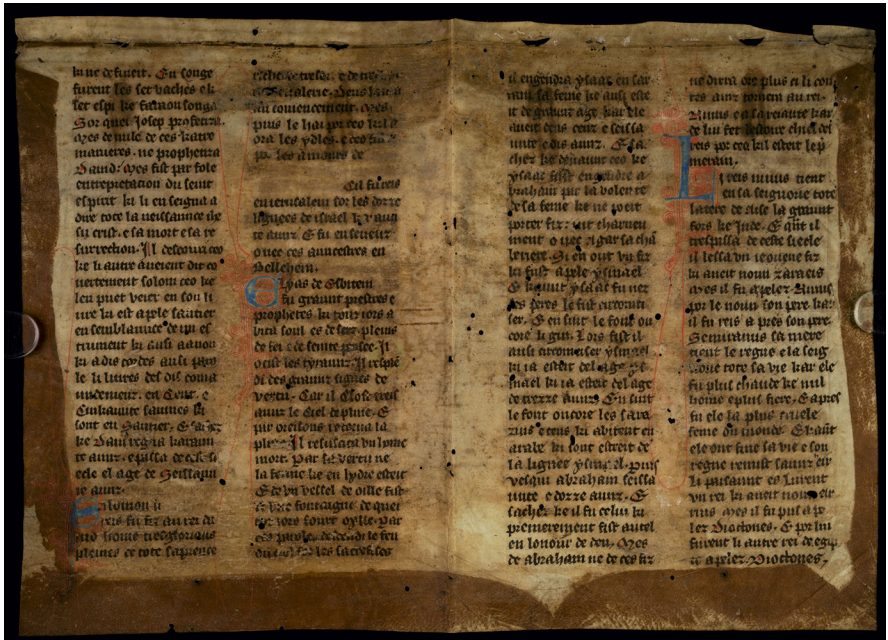 ki ne defuient. En songe
furent les set vaches e li
set espi ke faraon songa
Sor quei Iosep profetiza
mes de nule de ces katre
manieres. ne prophetiza
Dauid. Mes fist par sole
entrepretation du seint
espirit ki li enseigna a
dire tote la neissance de
su crist. e sa mort e sa re
surrection. Il descouri ceo
ke li autre aueient dit co
uertement solom ceo ke
len puet veeir en son li
ure ki est apele sautier
en semblance de un es
trument ki ausi a anon
ki a dis cordes ausi paro
le li liures des dis coma
undemenz. en Cent. e
Cinkaunte saumes ki
sont en Sautier. E
ke Dauid regna karaun
te aunz. e passa de cest si
ecle el age de seissaun
te aunz.
Salomon li
reis fu fiz au rei da
uid home tresglorius
pleines de tote sapience
riche de tresor e de
au comencement. Mes
puis le hai por ceo kil a
ora les ydles. e ceo fu
por les amours de
Cil fu reis
en ierusalem sor les doze
lignees de israel karaun
te aunz. E fu enseueli
o uec ces auncestres en
Bellehem.
Elyas de Thesbiteni
fu graunt prestres e
prophetes ki touz iors a
bita soul es desers pleins
de foi e de seinte pensee. Il
ocist les tyraunz. Il resplen
di des graunz signes de
vertu. Car il closi treis
aunz le Ciel de pluie. E
par oreisons retorna la
pluie. Il resuscita un home
mort. Par la vertu ne
la feme ke en lydre esteit
E de un vessel de oille fist
une fontaigne de quei
tor iors soure oylle. Par
ces paroles descendi le feu
du ciel sor les sacrefises
il engendra ysaac en sar
ram sa feme ke ausi este
it de graunt age kar ele
aueit deus cenz e seissa
unte e dis aunz. E sa
chez ke deuaunt ceo ke
ysaac fust engendre a
braham par la volente
de sa feme ke ne poeit
porter fiz. iut charneu
ment o uec agar sa cha
beriere. Si en out un fiz
ki fust apele ysmael
E kaunt ysaac fu nez
ses peres le fist circonci
ser. E ensint le font on
core li giu. Lors fist il
ausi circonciser ysmael
ki ia esteit del age ys
mael ki ia esteit del age
de trezze aunz. E ensint
le font oncore les sara
zins e ceus ki abitent en
arabe. ki sont estreit de
la lignee ysmael. Puis
vesqui abraham seissa
unte e dozze aunz. E
sachez ke il fu celui ki
premerement fist autel
en lonour de deu. Mes
de abraham ne de ces fiz
ne dirra ore plus ci li con
tes ainz tornera au rei
Ninus e a sa reiaute kar
de lui fet lestoire chief des
reis por ceo kil esteit le pri
merain.
Li reis ninus tient
en sa seignorie tote
la terre de Aise la graunt
fors ke Inde. E quant il
trespassa de ceste siecle
il lessa un ieouene fiz
ki aueit noun zaraeis
mes il fu apelez Ninus
por le noun son pere kar
il fu reis a pres son pere.
Semiramis sa mere
tient le regne e la seig
norie tote sa vie kar ele
fu plus chaude ke nul
home e plus fiere. E apres
fu ele la plus cruele
feme du monde. E kaunt
ele out fine sa vie e son
regne remist saunz eir
li paisaunt eslurent
un rei ki aueit noun eir
rius mes il fu puis ape
lez Diactones. E por lui
furent li autre rei de egip
te apelez Diactones.